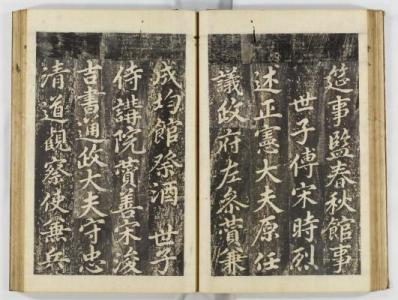 筵事監春秋館事
世子傅宋時烈
述正憲大夫原任
議政府左參贊兼
成均館祭酒 世子
侍講院贊善宋浚
吉書通政大夫守忠
清道觀察使兼兵